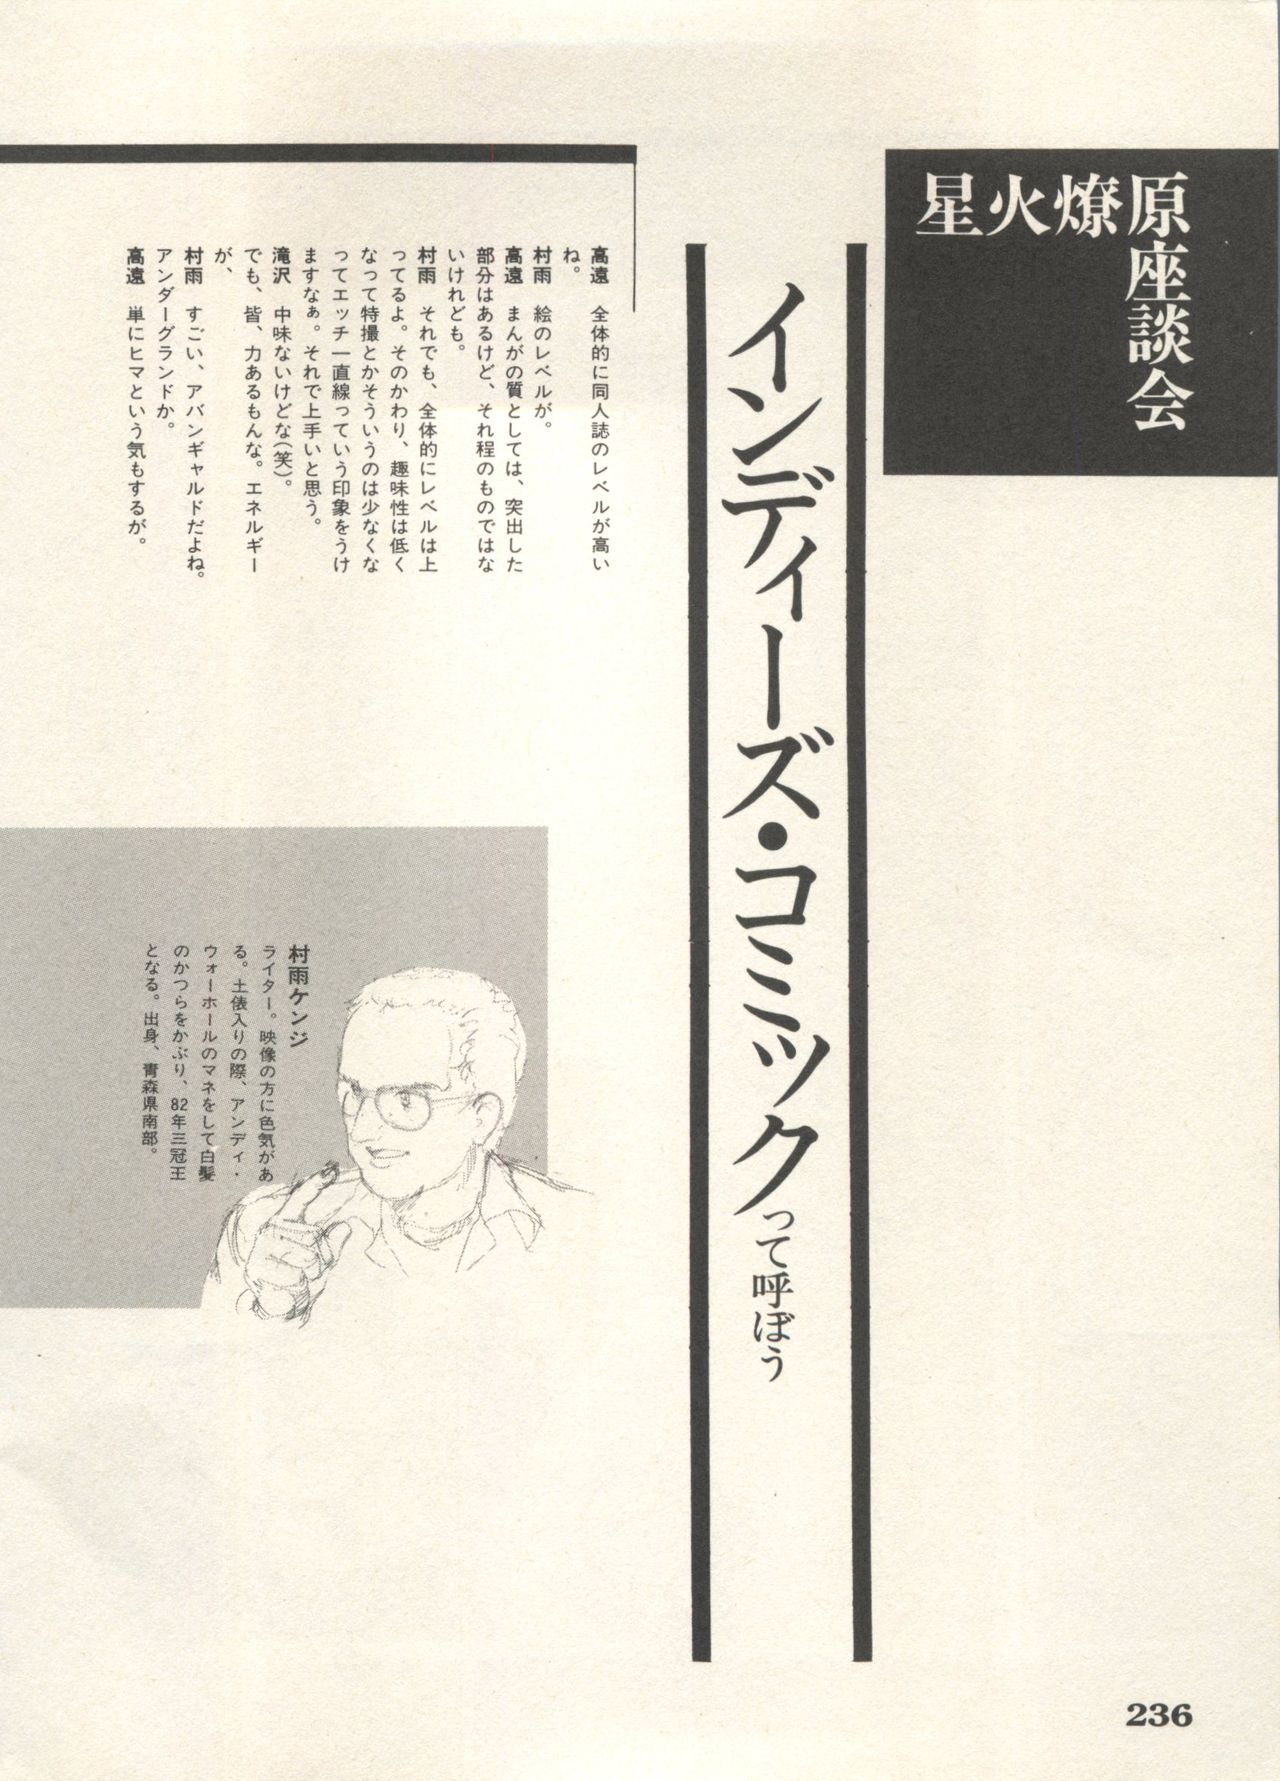 星火燎原座談会
インディーズ・コミックって呼ぼう
高遠　全体的に同人誌のレベルが高い
ね。
村雨　絵のレベルが。
高遠　まんがの質としては、突出した
部分はあるけど、それ程のものではな
いけれども。
村雨　それでも、全体的にレベルは上
ってるよ。そのかわり、趣味性は低く
なって特撮とかそういうのは少なくな
ってエッチ一直線っていう印象をうけ
ますなぁ。それで上手いと思う。
滝沢　中味ないけどな(笑)。
でも、皆、力あるもんな。エネルギー
が、
村雨　すごい、アバンギャルドだよね。
アンダーグランドか。
高遠　単にヒマという気もするが。
村雨ケンジ
ライター。映像の方に色気があ
る。土俵入りの際、アンディ・
ウォーホールのマネをして白髪
のかつらをかぶり、82年三冠王
となる。出身、青森県南部。
236